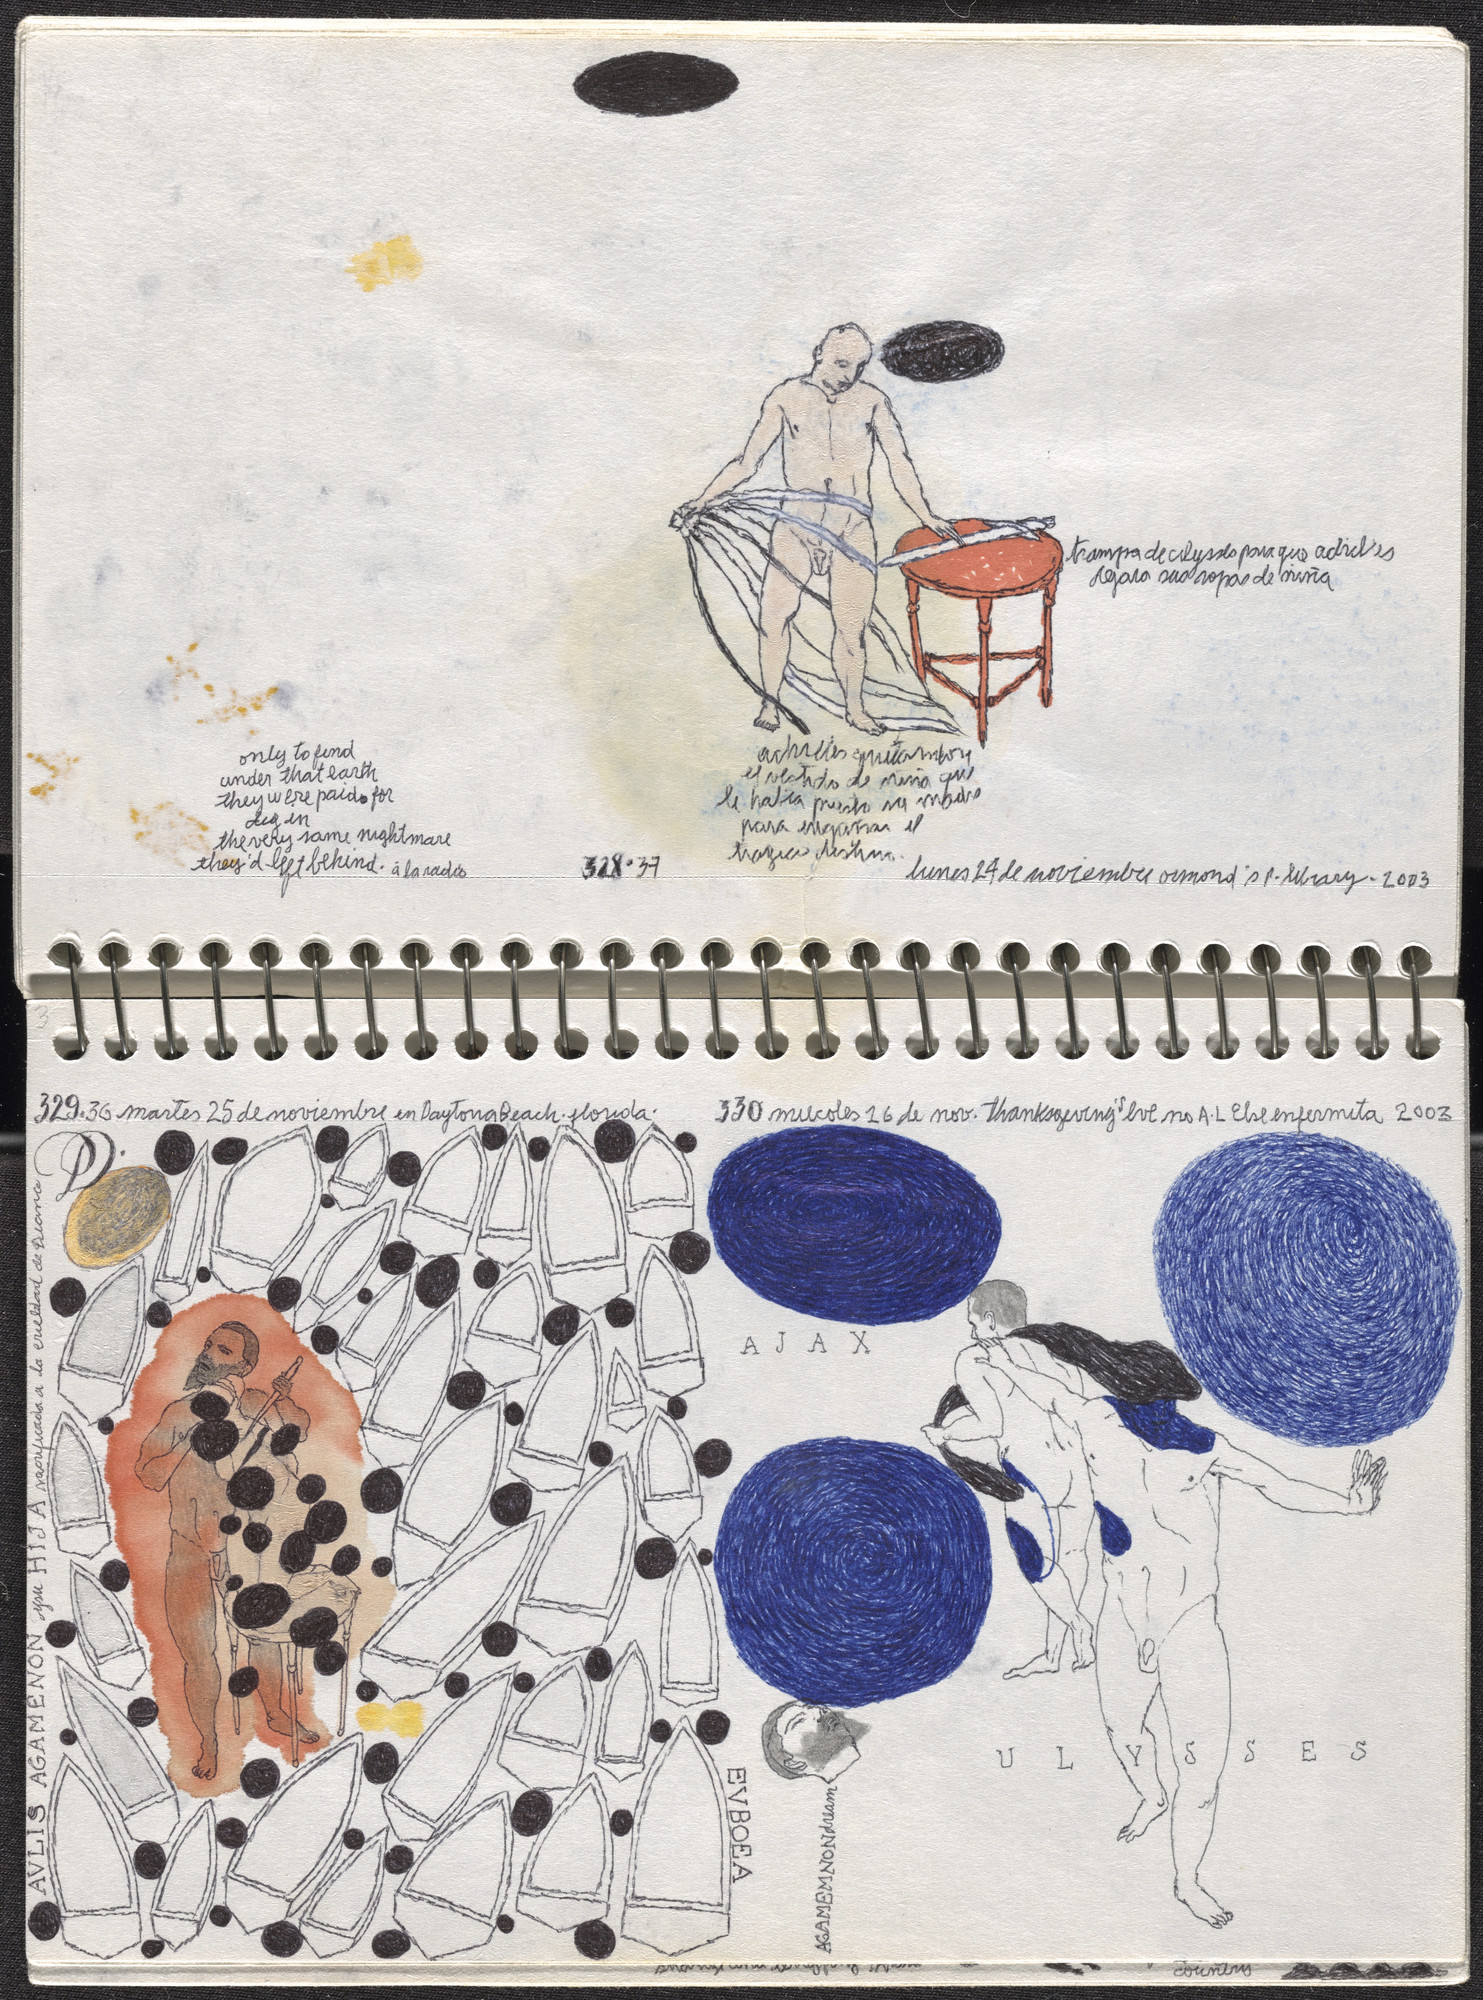 trampa de ulysses para que achiles
dejara sus ropas de niña
only to find
under that earth
they were paid for
dig in
the very same nightmare
they'd left behind. á la radio
achiles quitandose
el vestido de niña que
le habia puesto su madre
para engañar el
tragico destino.
328·37
lunes 24 de noviembre ormond's p. library. 2003
329·36 martes 25 de noviembre en Daytona Beach·florida·
330 miercoles 26 de nov. Thanksgiving's Eve no A·L Else enfermita 2003
D.
AVLIS AGAMENON y su HIJA sacrificada a la crueldad de Diana
EVBOEA
AJAX
ULYSSES
AGAMEMNON dream
country